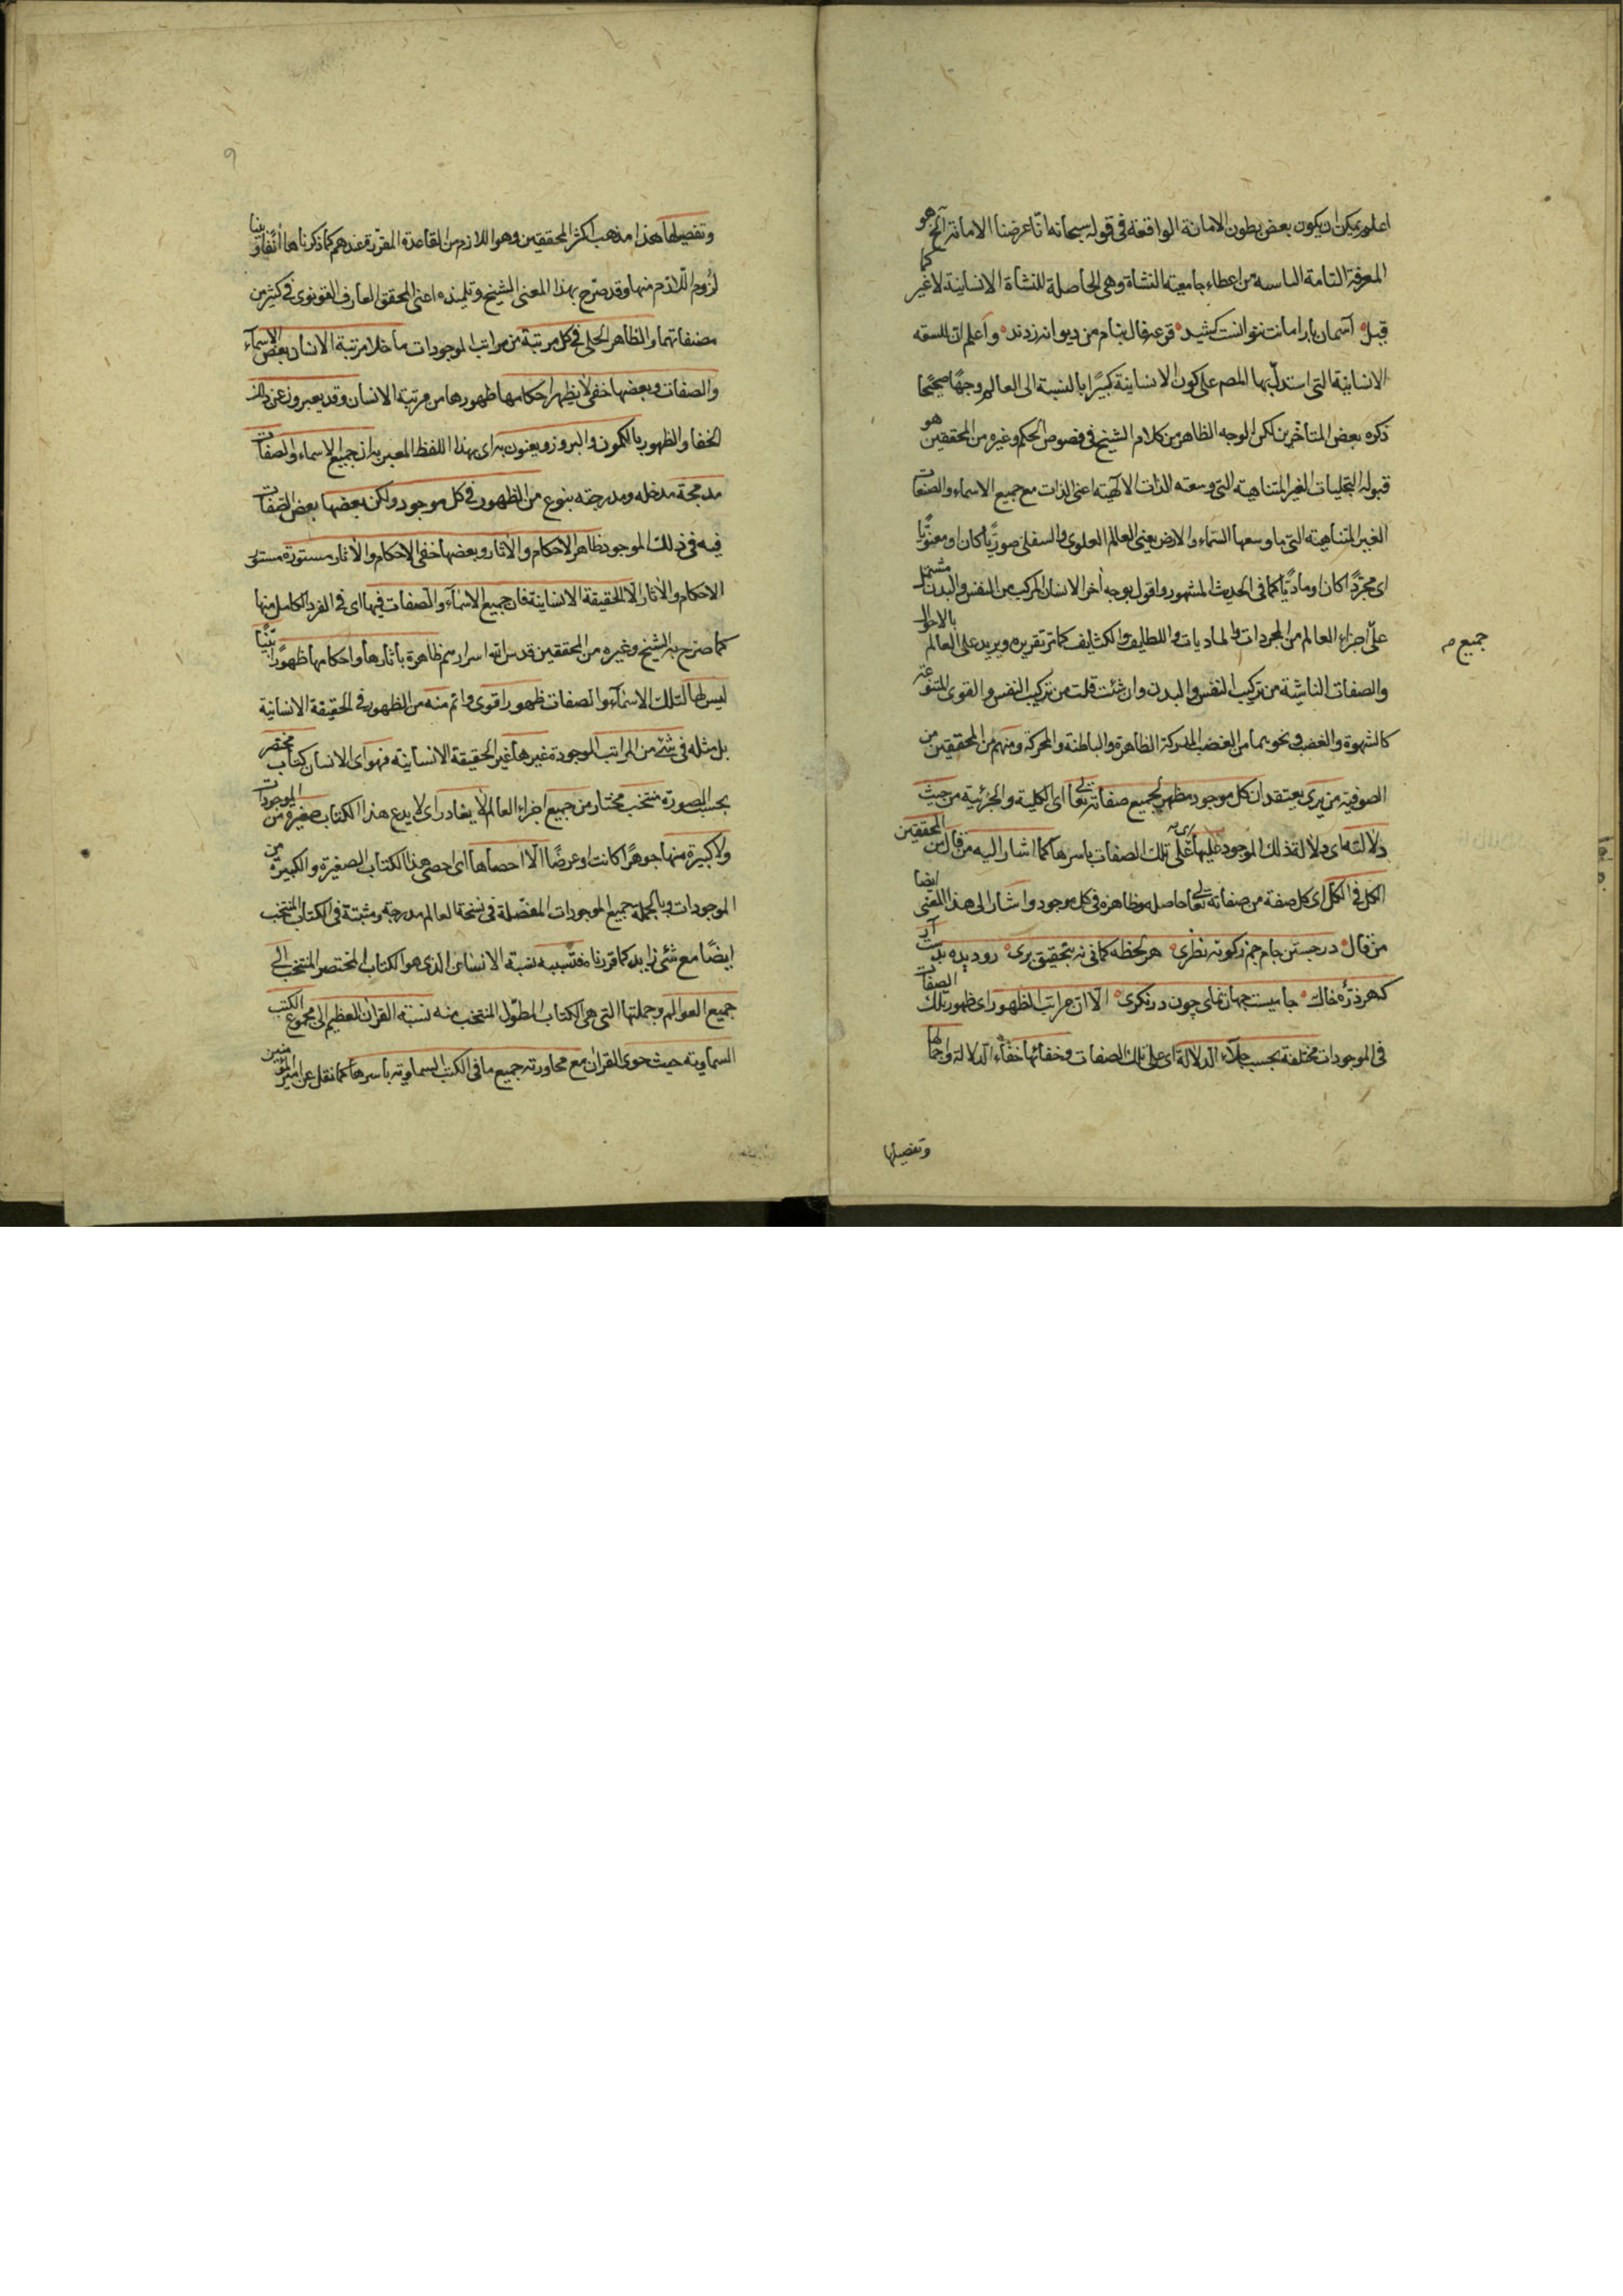 اعلم يمكن ان يكون بعض بطون الامانة الواقعة فى قوله سبحانه انّا عرضنا الامانة الخ هو
المعرفة التامة من اعطاء جامعية النشاة وهى الحاصلة للنشاة الانسانية لا غير كما
قيل آسمان بار امانت نتوانست كشيد قرعه فال بنام من ديوانه زدند واعلم ان للسعة
الانسانية التى استدلّ بها المصم على كون الانسانية كبيرًا بالنسبة الى العالم وجهًا صحيحًا
ذكره بعض المتأخرين لكن الوجه الظاهر من كلام الشيخ فى فصوص الحكم وغيره من المحققين هو
قبوله التجليات الغير المتناهية التى وسعته الذات الالهية اعنى الذات مع جميع الاسماء والصفات
الغير المتناهية التى ما وسعها السّماء والارض يعنى العالم العلوى والسفلى صوريًا كان او معنويًّا
اى مجرّدًا كان او ماديًّا كما فى الحديث المشهور واقول بوجه اخر الانسان المركب من النفس والبدن مشتمل
على اجزاء العالم من المجردات والماديات واللطايف والكثايف كما مر تقريره ويزيد على العالم بالاحوال
جميع صح
والصفات الناشية من تركيب النفس والبدن وان شئت قلت من تركيب النفس والقوى المتنوعة
كالشهوة والغضب ونحو بما من الغضب المدركة الظاهرة والباطنة والمحركة ومنهم من المحققين من
الصوفية من يرى يعتقد ان كل موجود مظهر لجميع صفاته تعالى اى الكلية والجزئية من حيث
دلالته اى دلالة ذلك الموجود عليها اى على تلك الصفات باسرها كما اشار اليه من قال من المحققين
الكل فى الكل اى كل صفة من صفاته تعالى حاصله وظاهرة فى كل موجود واشار الى هذا المعنى ايضا
من قال در جستن جام جم زكوته نظرى هر لحظه كمانى نه بتحقيق برى رو ديده بدست آر
كه هر ذرّه خاك جاميست جهان نماى چون در نگرى الّا ان مراتب الظهور اى ظهور تلك الصفات
فى الموجودات مختلفة بحسب جلاء الدلالة اى على تلك الصفات وخفائها خفاء الدلالة واجمالها
وتفصيلها
وتفصيلها هذا مذهب اكثر المحققين وهو اللازم من القاعدة المقررة عندهم كما ذكرناها آنفًا وبينا
لزوم اللّازم منها وقد صرّح بهذا المعنى الشيخ وتلميذه اعنى المحقق العارف القونوى فى كثير من
مصنفاتهما والظاهر الجلى فى كل مرتبة من مراتب الموجودات ما خلا مرتبة الانسان بعض الاسماء
والصفات وبعضها خفى لا يظهر احكامها ظهورها من مرتبة الانسان وقد يعبرون عن ذلك
الخفا والظهور بالكمون والبروز ويعنون به اى بهذا اللفظ المعبر به ان جميع الاسماء والصفات
مدمجة مدخله ومدرجة بنوع من الظهور فى كل موجود ولكن بعضها بعض الصفات
فيه فى ذلك الموجود ظاهر الاحكام والاثار وبعضها خفى الاحكام والاثار مستورة مستور
الاحكام والاثار الّا الحقيقة الانسانية فان جميع الاسماء والصفات فيها اى فى الفرد الكامل منها
كما صرّح به الشيخ وغيره من المحققين قدس الله اسرارهم ظاهرة باثارها واحكامها ظهورًا بيّنًا
ليس لها لتلك الاسماء والصفات ظهورا اقوى واتم منه من الظهور فى الحقيقة الانسانية
بل مثله فى شئ من المراتب الموجودة غيرها غير الحقيقة الانسانية فهو اى الانسان كتاب مختصر
بحسب الصورة منتخب مختار من جميع اجزاء العالم لا يغادر اى لا يدع هذا الكتاب صغيرة من الموجودات
ولا كبيرة منها جوهرًا كانت او عرضًا الّا احصاها اى احصى هذا الكتاب الصغيرة والكبيرة من
الموجودات وبالجملة جميع الموجودات المفصّلة فى نسخة العالم مدرجة ومثبتة فى الكتاب المنتخب
ايضًا مع شئ زايد كما قررنا فنسبته نسبة الانسان الذى هو الكتاب المختصر المنتخب الى
جميع العوالم وجملتها التى هى الكتاب المطوّل المنتخب منه نسبة القران العظيم الى مجموع الكتب
السماوية حيث حوى القران مع محاورته جميع ما فى الكتب السماوية باسرها كما نقل عن امير المؤمنين